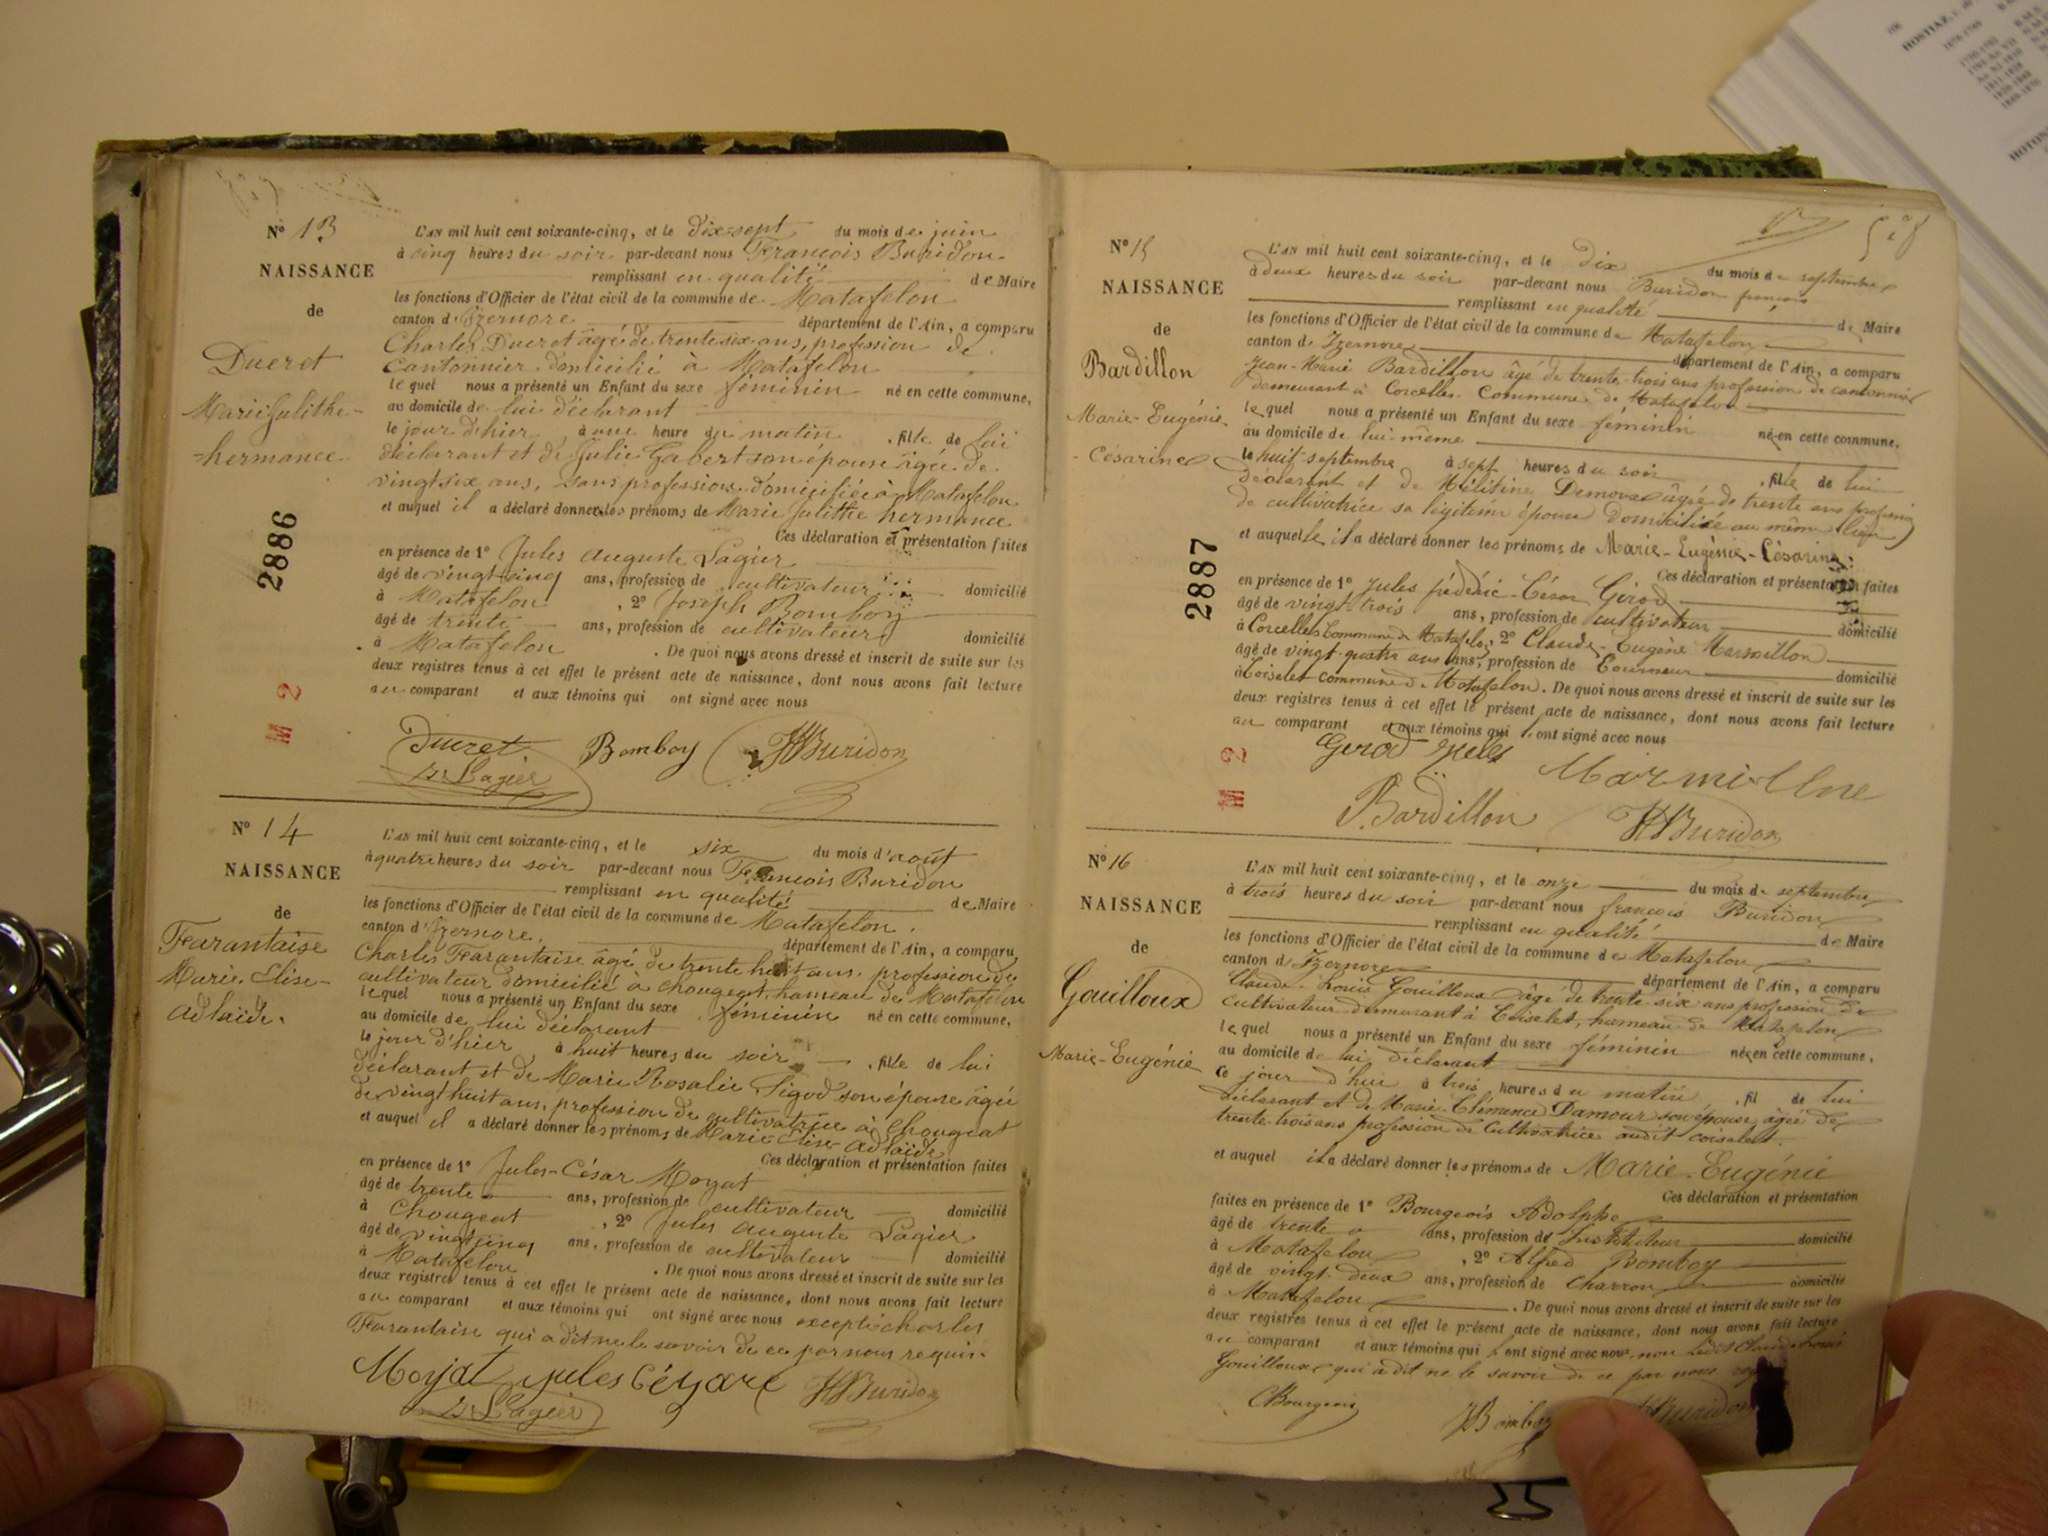 N° 13
NAISSANCE
de
Ducret
Marie Julithe-
-hermance
2886
M 2
L'AN mil huit cent soixante-cinq, et le dix-sept du mois de juin
à cinq heures du soir par-devant nous François Buridon
remplissant en qualité de Maire
les fonctions d'Officier de l'état civil de la commune de Matafelon
canton d'Izernore département de l'Ain, a comparu
Charles Ducret âgé de trente six ans, profession de
cantonnier domicilié à Matafelon
lequel nous a présenté un Enfant du sexe féminin né en cette commune,
au domicile de lui déclarant
le jour d'hier à une heure du matin, fille de lui
déclarant et de Julie Gabert son épouse âgée de
vingt six ans, sans profession domiciliée à Matafelon
et auquel il a déclaré donner les prénoms de Marie Julithe hermance
Ces déclaration et présentation faites
en présence de 1° Jules Auguste Lagier
âgé de vingt cinq ans, profession de cultivateur domicilié
à Matafelon, 2° Joseph Bomboy
âgé de trente ans, profession de cultivateur domicilié
à Matafelon. De quoi nous avons dressé et inscrit de suite sur les
deux registres tenus à cet effet le présent acte de naissance, dont nous avons fait lecture
au comparant et aux témoins qui ont signé avec nous
Ducret Bomboy Buridon
Lagier
N° 14
NAISSANCE
de
Farantaise
Marie Elise-
Adlaïde.
L'AN mil huit cent soixante-cinq, et le six du mois d'août
à quatre heures du soir par-devant nous François Buridon
remplissant en qualité de Maire
les fonctions d'Officier de l'état civil de la commune de Matafelon.
canton d'Izernore. département de l'Ain, a comparu
Charles Farantaise âgé de trente huit ans, profession de
cultivateur domicilié à Chougeat hameau de Matafelon
lequel nous a présenté un Enfant du sexe féminin né en cette commune,
au domicile de lui déclarant
le jour d'hier à huit heures du soir, fille de lui
déclarant et de Marie Rosalie Sigod son épouse âgée
de vingt huit ans, profession de cultivatrice à Chougeat
et auquel il a déclaré donner les prénoms de Marie Elise Adlaïde
Ces déclaration et présentation faites
en présence de 1° Jules-César Moyat
âgé de trente ans, profession de cultivateur domicilié
à Chougeat, 2° Jules Auguste Lagier
âgé de vingt cinq ans, profession de cultivateur domicilié
à Matafelon. De quoi nous avons dressé et inscrit de suite sur les
deux registres tenus à cet effet le présent acte de naissance, dont nous avons fait lecture
au comparant et aux témoins qui ont signé avec nous excepté Charles
Farantaise qui a dit ne le savoir de ce par nous requis.
Moyat jules Buridon
Lagier
N° 15
NAISSANCE
de
Bardillon
Marie-Eugénie-
-Césarine
2887
M 2
L'AN mil huit cent soixante-cinq, et le dix du mois de septembre
à deux heures du soir par-devant nous Buridon françois
remplissant en qualité de Maire
les fonctions d'Officier de l'état civil de la commune de Matafelon
canton de Izernore département de l'Ain, a comparu
Jean-Marie Bardillon âgé de trente-trois ans profession de cantonnier
demeurant à Corcelles Commune de Matafelon
lequel nous a présenté un Enfant du sexe féminin né en cette commune,
au domicile de lui-même
le huit septembre à sept heures du soir, fille de lui
déclarant et de Mélitine âgée de trente ans profession
de cultivatrice sa légitime épouse domiciliée au même lieu
et auquel le il a déclaré donner les prénoms de Marie-Eugénie-Césarine.
Ces déclaration et présentation faites
en présence de 1° Jules frédéric-César Girod
âgé de vingt-trois ans, profession de cultivateur domicilié
à Corcelles Commune de Matafelon, 2° Claude-Eugène Marmillon
âgé de vingt-quatre ans ans, profession de Tourneur domicilié
à Coiselet commune de Matafelon. De quoi nous avons dressé et inscrit de suite sur les
deux registres tenus à cet effet le présent acte de naissance, dont nous avons fait lecture
au comparant et aux témoins qui ont signé avec nous
Girod Jules
Bardillon Buridon
N° 16
NAISSANCE
de
Gouilloux
Marie-Eugénie
L'AN mil huit cent soixante-cinq, et le onze du mois de septembre
à trois heures du soir par-devant nous françois Buridon
remplissant en qualité de Maire
les fonctions d'Officier de l'état civil de la commune de Matafelon
canton d'Izernore département de l'Ain, a comparu
Claude-Louis Gouilloux âgé de trente-six ans profession de
cultivateur demeurant à Coiselet, hameau de Matafelon
lequel nous a présenté un Enfant du sexe féminin né en cette commune,
au domicile de lui déclarant
ce jour d'hui à trois heures du matin, fil de lui
déclarant et de Marie-Clémence Damour son épouse, âgée de
trente-trois ans profession de Cultivatrice audit coiselet.
et auquel il a déclaré donner les prénoms de Marie-Eugénie
Ces déclaration et présentation
faites en présence de 1° Bourgeois Adolphe
âgé de trente ans, profession de Instituteur domicilié
à Matafelon, 2° Alfred Bomboy
âgé de vingt-deux ans, profession de Charron domicilié
à Matafelon. De quoi nous avons dressé et inscrit de suite sur les
deux registres tenus à cet effet le présent acte de naissance, dont nous avons fait lecture
au comparant et aux témoins qui ont signé avec nous non ledit Claude-Louis
Gouilloux qui a dit ne le savoir de ce par nous
Bourgeois Bomboy Buridon
HOSTIAZ